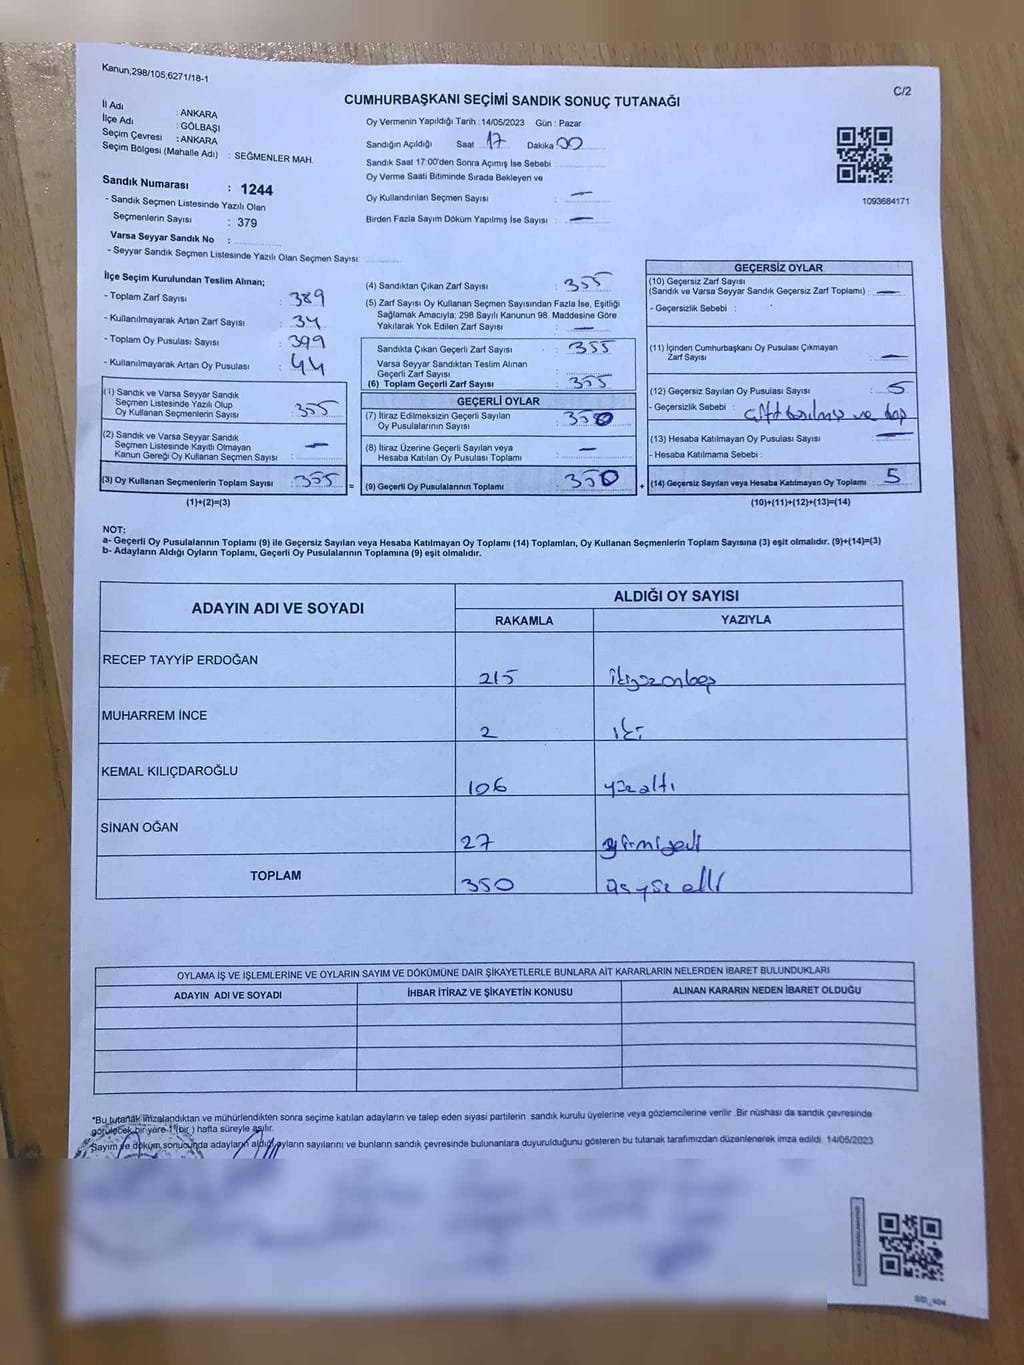 Kanun;298/105;6271/18-1
C/2
CUMHURBAŞKANI SEÇİMİ SANDIK SONUÇ TUTANAĞI
İl Adı : ANKARA
İlçe Adı : GÖLBAŞI
Seçim Çevresi : ANKARA
Seçim Bölgesi (Mahalle Adı) : SEĞMENLER MAH.
Oy Vermenin Yapıldığı Tarih : 14/05/2023 Gün : Pazar
Sandığın Açıldığı Saat 17 Dakika 00
Sandık Saat 17:00'den Sonra Açımış İse Sebebi :
Oy Verme Saati Bitiminde Sırada Bekleyen ve
Oy Kullandırılan Seçmen Sayısı : —
Birden Fazla Sayım Döküm Yapılmış İse Sayısı : —
1093684171
Sandık Numarası : 1244
- Sandık Seçmen Listesinde Yazılı Olan
Seçmenlerin Sayısı : 379
Varsa Seyyar Sandık No :
- Seyyar Sandık Seçmen Listesinde Yazılı Olan Seçmen Sayısı:
İlçe Seçim Kurulundan Teslim Alınan;
- Toplam Zarf Sayısı : 389
- Kullanılmayarak Artan Zarf Sayısı : 34
- Toplam Oy Pusulası Sayısı : 399
- Kullanılmayarak Artan Oy Pusulası : 44
(1) Sandık ve Varsa Seyyar Sandık
Seçmen Listesinde Yazılı Olup
Oy Kullanan Seçmenlerin Sayısı : 355
(2) Sandık ve Varsa Seyyar Sandık
Seçmen Listesinde Kayıtlı Olmayan
Kanun Gereği Oy Kullanan Seçmen Sayısı : —
(3) Oy Kullanan Seçmenlerin Toplam Sayısı : 355 =
(1)+(2)=(3)
(4) Sandıktan Çıkan Zarf Sayısı : 355
(5) Zarf Sayısı Oy Kullanan Seçmen Sayısından Fazla İse, Eşitliği
Sağlamak Amacıyla; 298 Sayılı Kanunun 98. Maddesine Göre
Yakılarak Yok Edilen Zarf Sayısı : —
Sandıkta Çıkan Geçerli Zarf Sayısı : 355
Varsa Seyyar Sandıktan Teslim Alınan
Geçerli Zarf Sayısı :
(6) Toplam Geçerli Zarf Sayısı : 355
GEÇERLİ OYLAR
(7) İtiraz Edilmeksizin Geçerli Sayılan
Oy Pusulalarının Sayısı : 350
(8) İtiraz Üzerine Geçerli Sayılan veya
Hesaba Katılan Oy Pusulası Toplamı : —
(9) Geçerli Oy Pusulalarının Toplamı : 350 +
GEÇERSİZ OYLAR
(10) Geçersiz Zarf Sayısı
(Sandık ve Varsa Seyyar Sandık Geçersiz Zarf Toplamı) : —
- Geçersizlik Sebebi :
(11) İçinden Cumhurbaşkanı Oy Pusulası Çıkmayan
Zarf Sayısı : —
(12) Geçersiz Sayılan Oy Pusulası Sayısı : 5
- Geçersizlik Sebebi : çift basılmış ve
(13) Hesaba Katılmayan Oy Pusulası Sayısı : —
- Hesaba Katılmama Sebebi :
(14) Geçersiz Sayılan veya Hesaba Katılmayan Oy Toplamı : 5
(10)+(11)+(12)+(13)=(14)
NOT:
a- Geçerli Oy Pusulalarının Toplamı (9) ile Geçersiz Sayılan veya Hesaba Katılmayan Oy Toplamı (14) Toplamları, Oy Kullanan Seçmenlerin Toplam Sayısına (3) eşit olmalıdır. (9)+(14)=(3)
b- Adayların Aldığı Oyların Toplamı, Geçerli Oy Pusulalarının Toplamına (9) eşit olmalıdır.
ADAYIN ADI VE SOYADI ALDIĞI OY SAYISI
RAKAMLA YAZIYLA
RECEP TAYYİP ERDOĞAN 215 ikiyüzonbeş
MUHARREM İNCE 2 iki
KEMAL KILIÇDAROĞLU 106 yüzaltı
SİNAN OĞAN 27 yirmiyedi
TOPLAM 350 üçyüz elli
OYLAMA İŞ VE İŞLEMLERİNE VE OYLARIN SAYIM VE DÖKÜMÜNE DAİR ŞİKAYETLERLE BUNLARA AİT KARARLARIN NELERDEN İBARET BULUNDUKLARI
ADAYIN ADI VE SOYADI İHBAR İTİRAZ VE ŞİKAYETİN KONUSU ALINAN KARARIN NEDEN İBARET OLDUĞU
*Bu tutanak imzalandıktan ve mühürlendikten sonra seçime katılan adayların ve talep eden siyasi partilerin sandık kurulu üyelerine veya gözlemcilerine verilir .Bir nüshası da sandık çevresinde
görülecek bir yere 1 (bir ) hafta süreyle asılır.
Sayım ve döküm sonucunda adayların aldığı oyların sayılarını ve bunların sandık çevresinde bulunanlara duyurulduğunu gösteren bu tutanak tarafımızdan düzenlenerek imza edildi. 14/05/2023